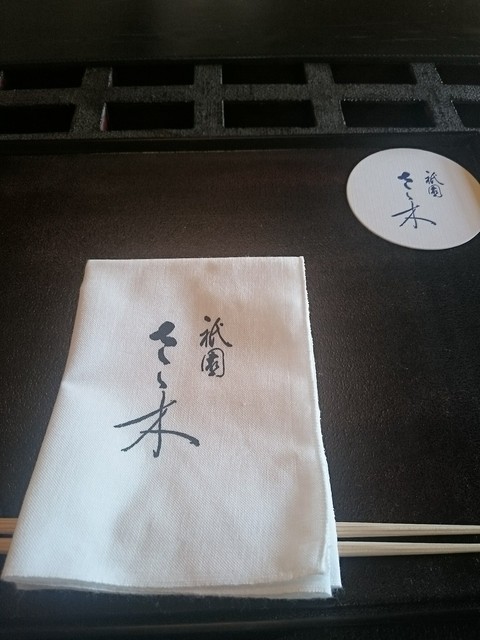 祇園
さゝ木
祇園
さゝ木